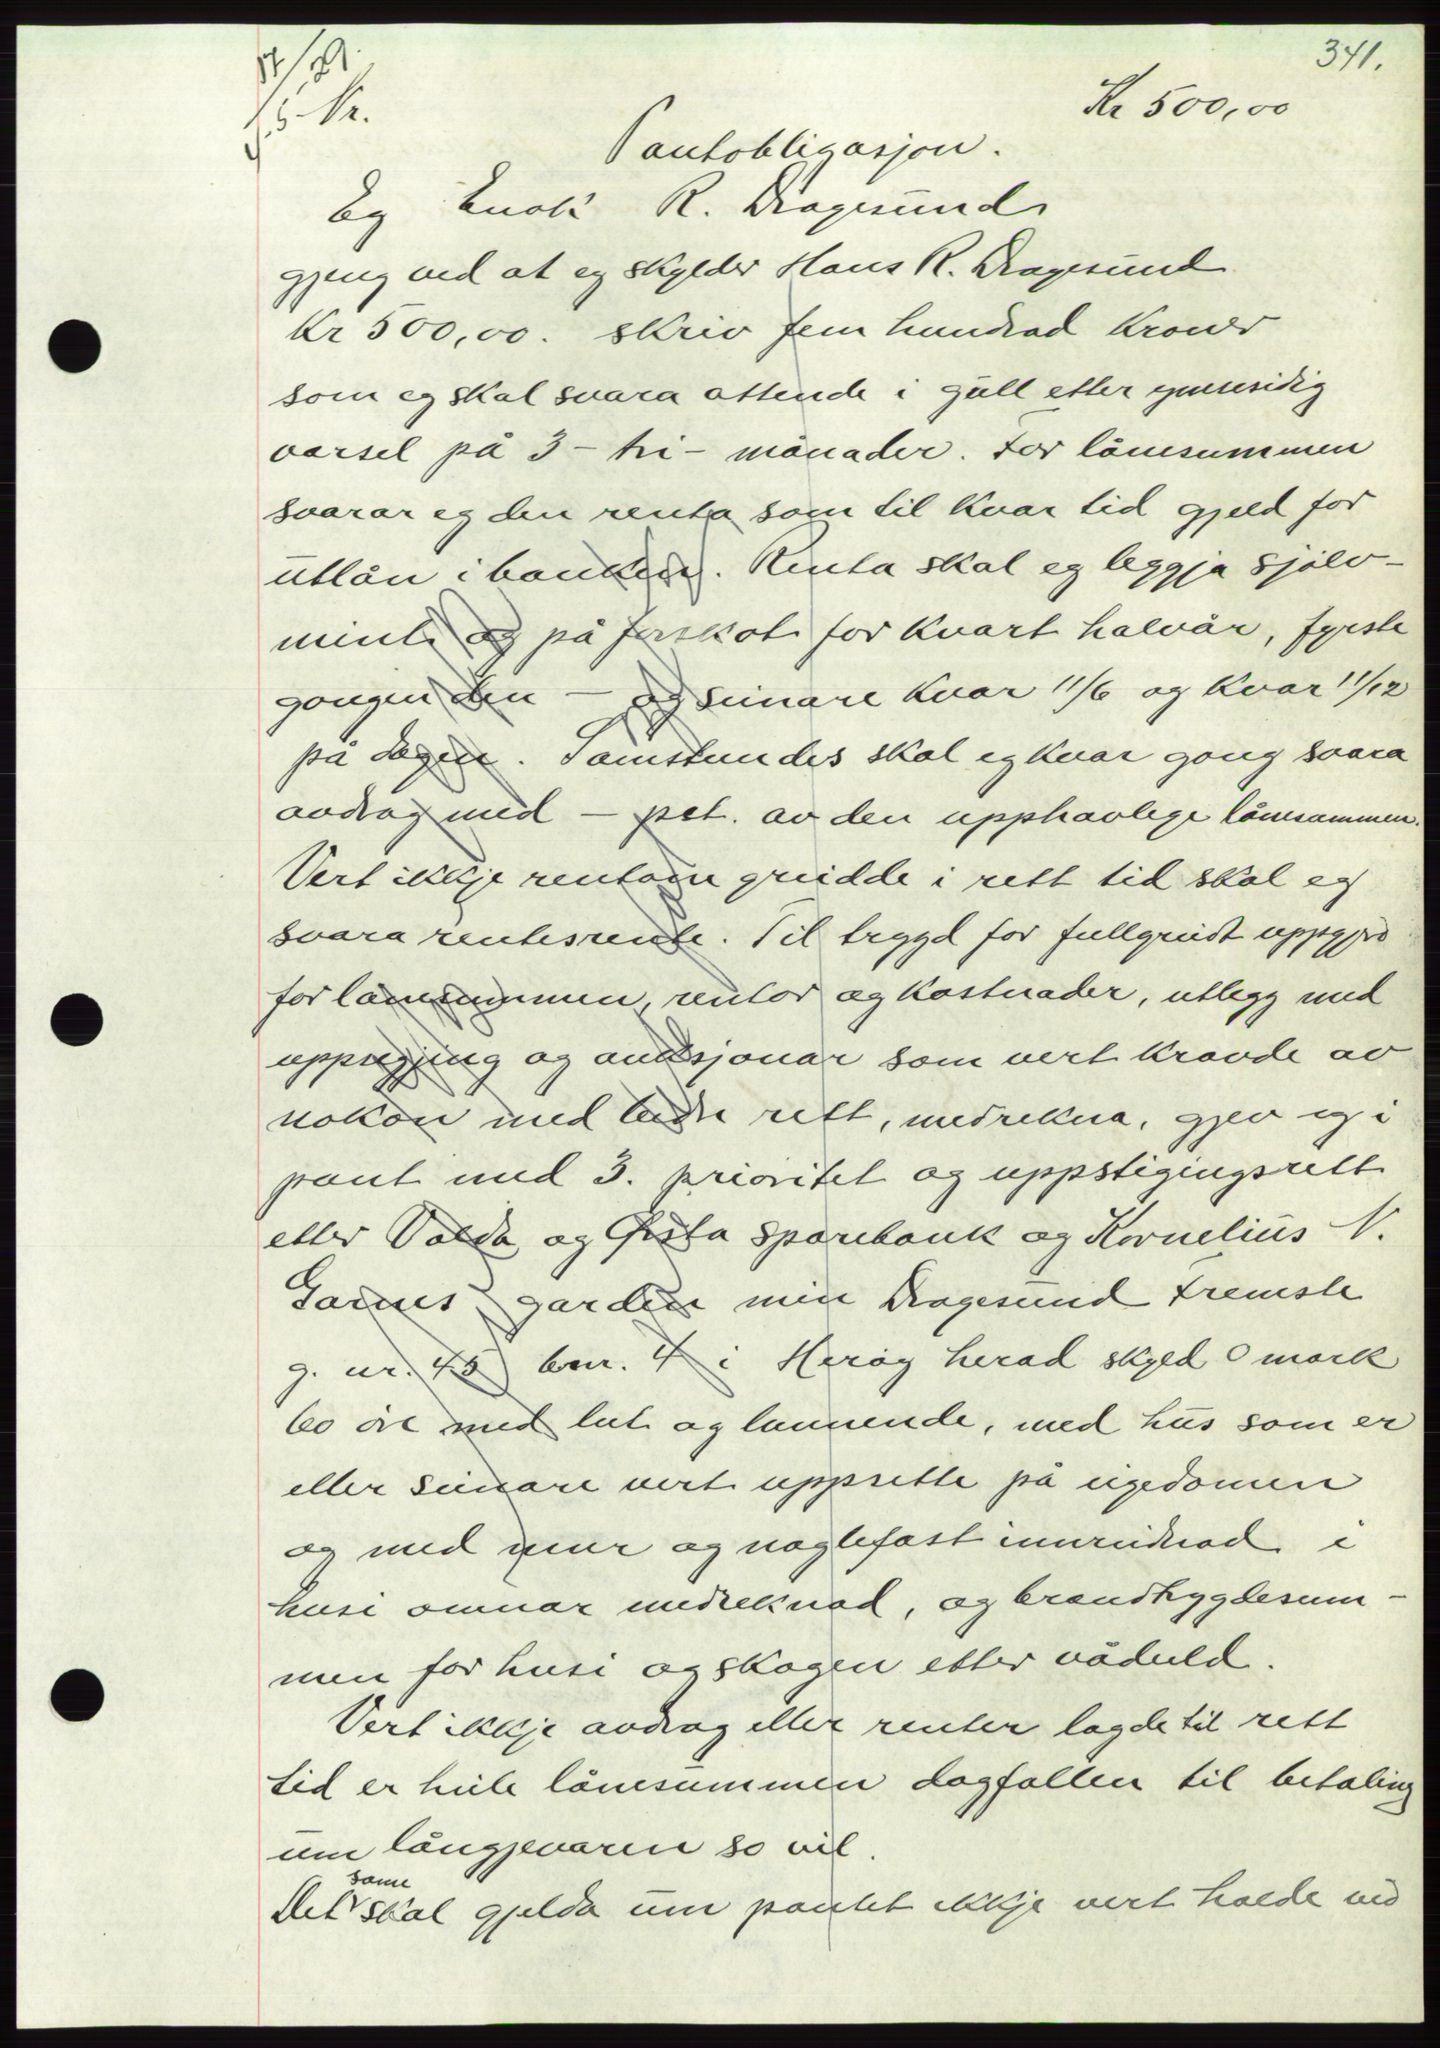 341.
17/29.
5 Kr.
Kr 500,00
Pantobligasjon.
Eg Enok R. Dragesund
gjeng ved at eg skylder Hans R. Dragesund
Kr 500,00. skriv fem hundrad Kroner
som eg skal svara attende i gull etter gjensidig
varsel på 3 - tri - månader. For lånesummen
svarar eg den renta som til kvar tid gjeld for
utlån i banken. Renta skal eg leggja sjølv-
mint og på forskot for kvart halvår, fyrste
gongen den — og seinare kvar 11/6 og kvar 11/12
på dagen. Samstundes skal eg kvar gong svara
avdrag med — pct. av den upphavlege lånesummen.
Vert ikkje rentom greidde i rett tid skal eg
svara rentesrente. Til trygd for fullgreidt uppgjerd
for lånesummen, rentor og kostnader, utlegg med
uppsegjing og auksjonar som vert kravde av
nokon med bedre rett, medrekna, gjev eg i
pant med 3. prioritet og uppstigingsrett
etter Volda og Ørsta sparebank og Kornelius N.
Garnes garden min Dragesund Fremste
g. nr. 45 bnr. 4 i Herøy herad skyld 0 mark
60 øre med lut og lunnende, med hus som er
eller seinare vert uppsette på eigedomen
og med mur og naglefast innreidnad i
husi omnar medreknad, og brandtrygdesum-
men for husi og skogen etter vådeeld.
Vert ikkje avdrag eller renter lagde til rett
tid er heile lånesummen dagfallen til betaling
um långjevaren so vil.
same
Det skal gjelda um pantet ikkje vert halde ved